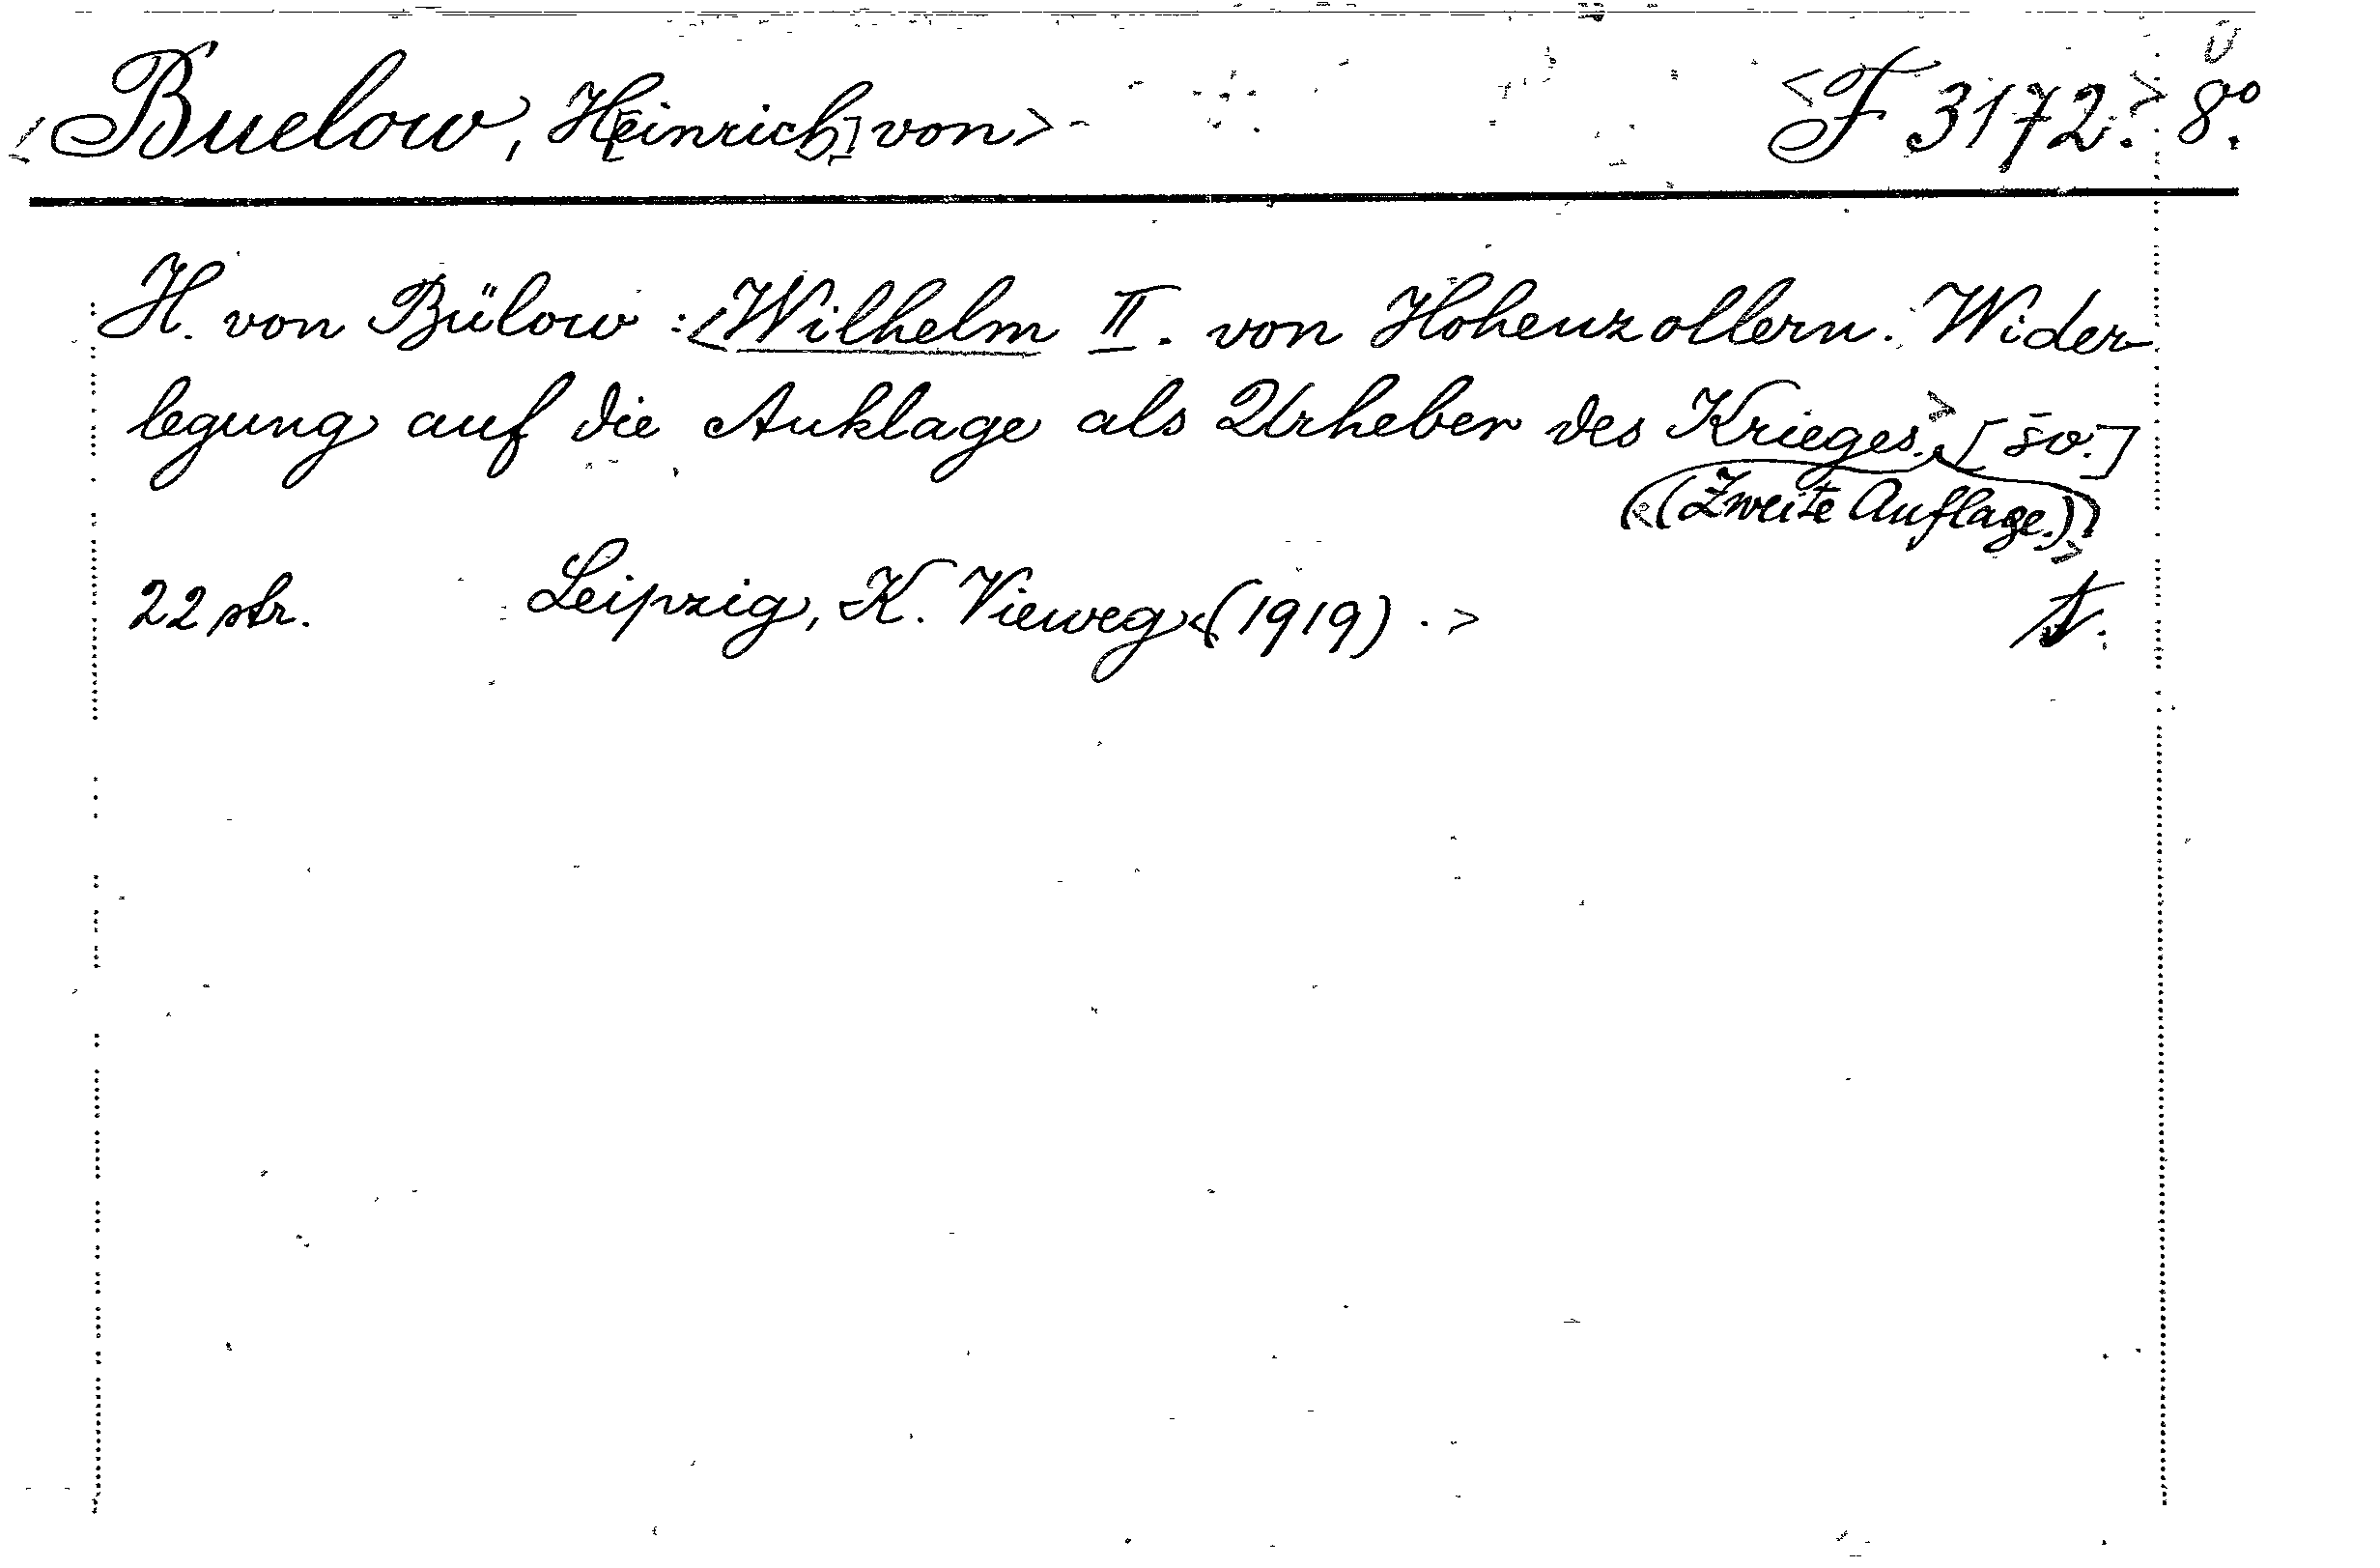 <Buelow, H[einrich] von> <F 3172.> 8°.
H. von Bülow: <Wilhelm II. von Hohenzollern. Wider-
legung auf die Anklage als Urheber des Krieges.> [šv.]
<(Zweite Auflage.)>
22 str. Leipzig, K. Vieweg <(1919).>